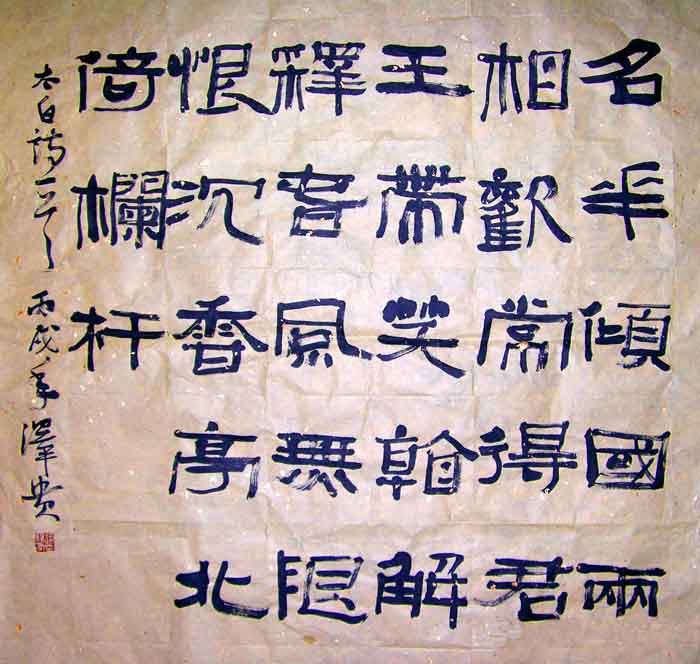 名花傾國兩
相歡常得君
王帶笑看解
釋春風無限
恨沉香亭北
倚欄杆
太白詩一首 丙戌年 澤貴